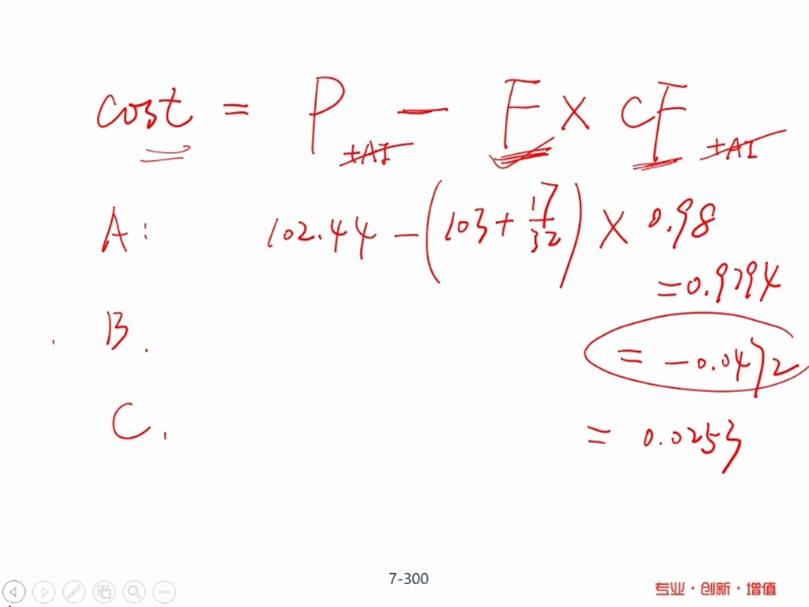 cost = P ±AI — F × CF ±AI
A: 102.44 - (103 + 17/32) × 0.98
= 0.9794
B.
= -0.0472
C.
= 0.0253
7-300
专业·创新·增值